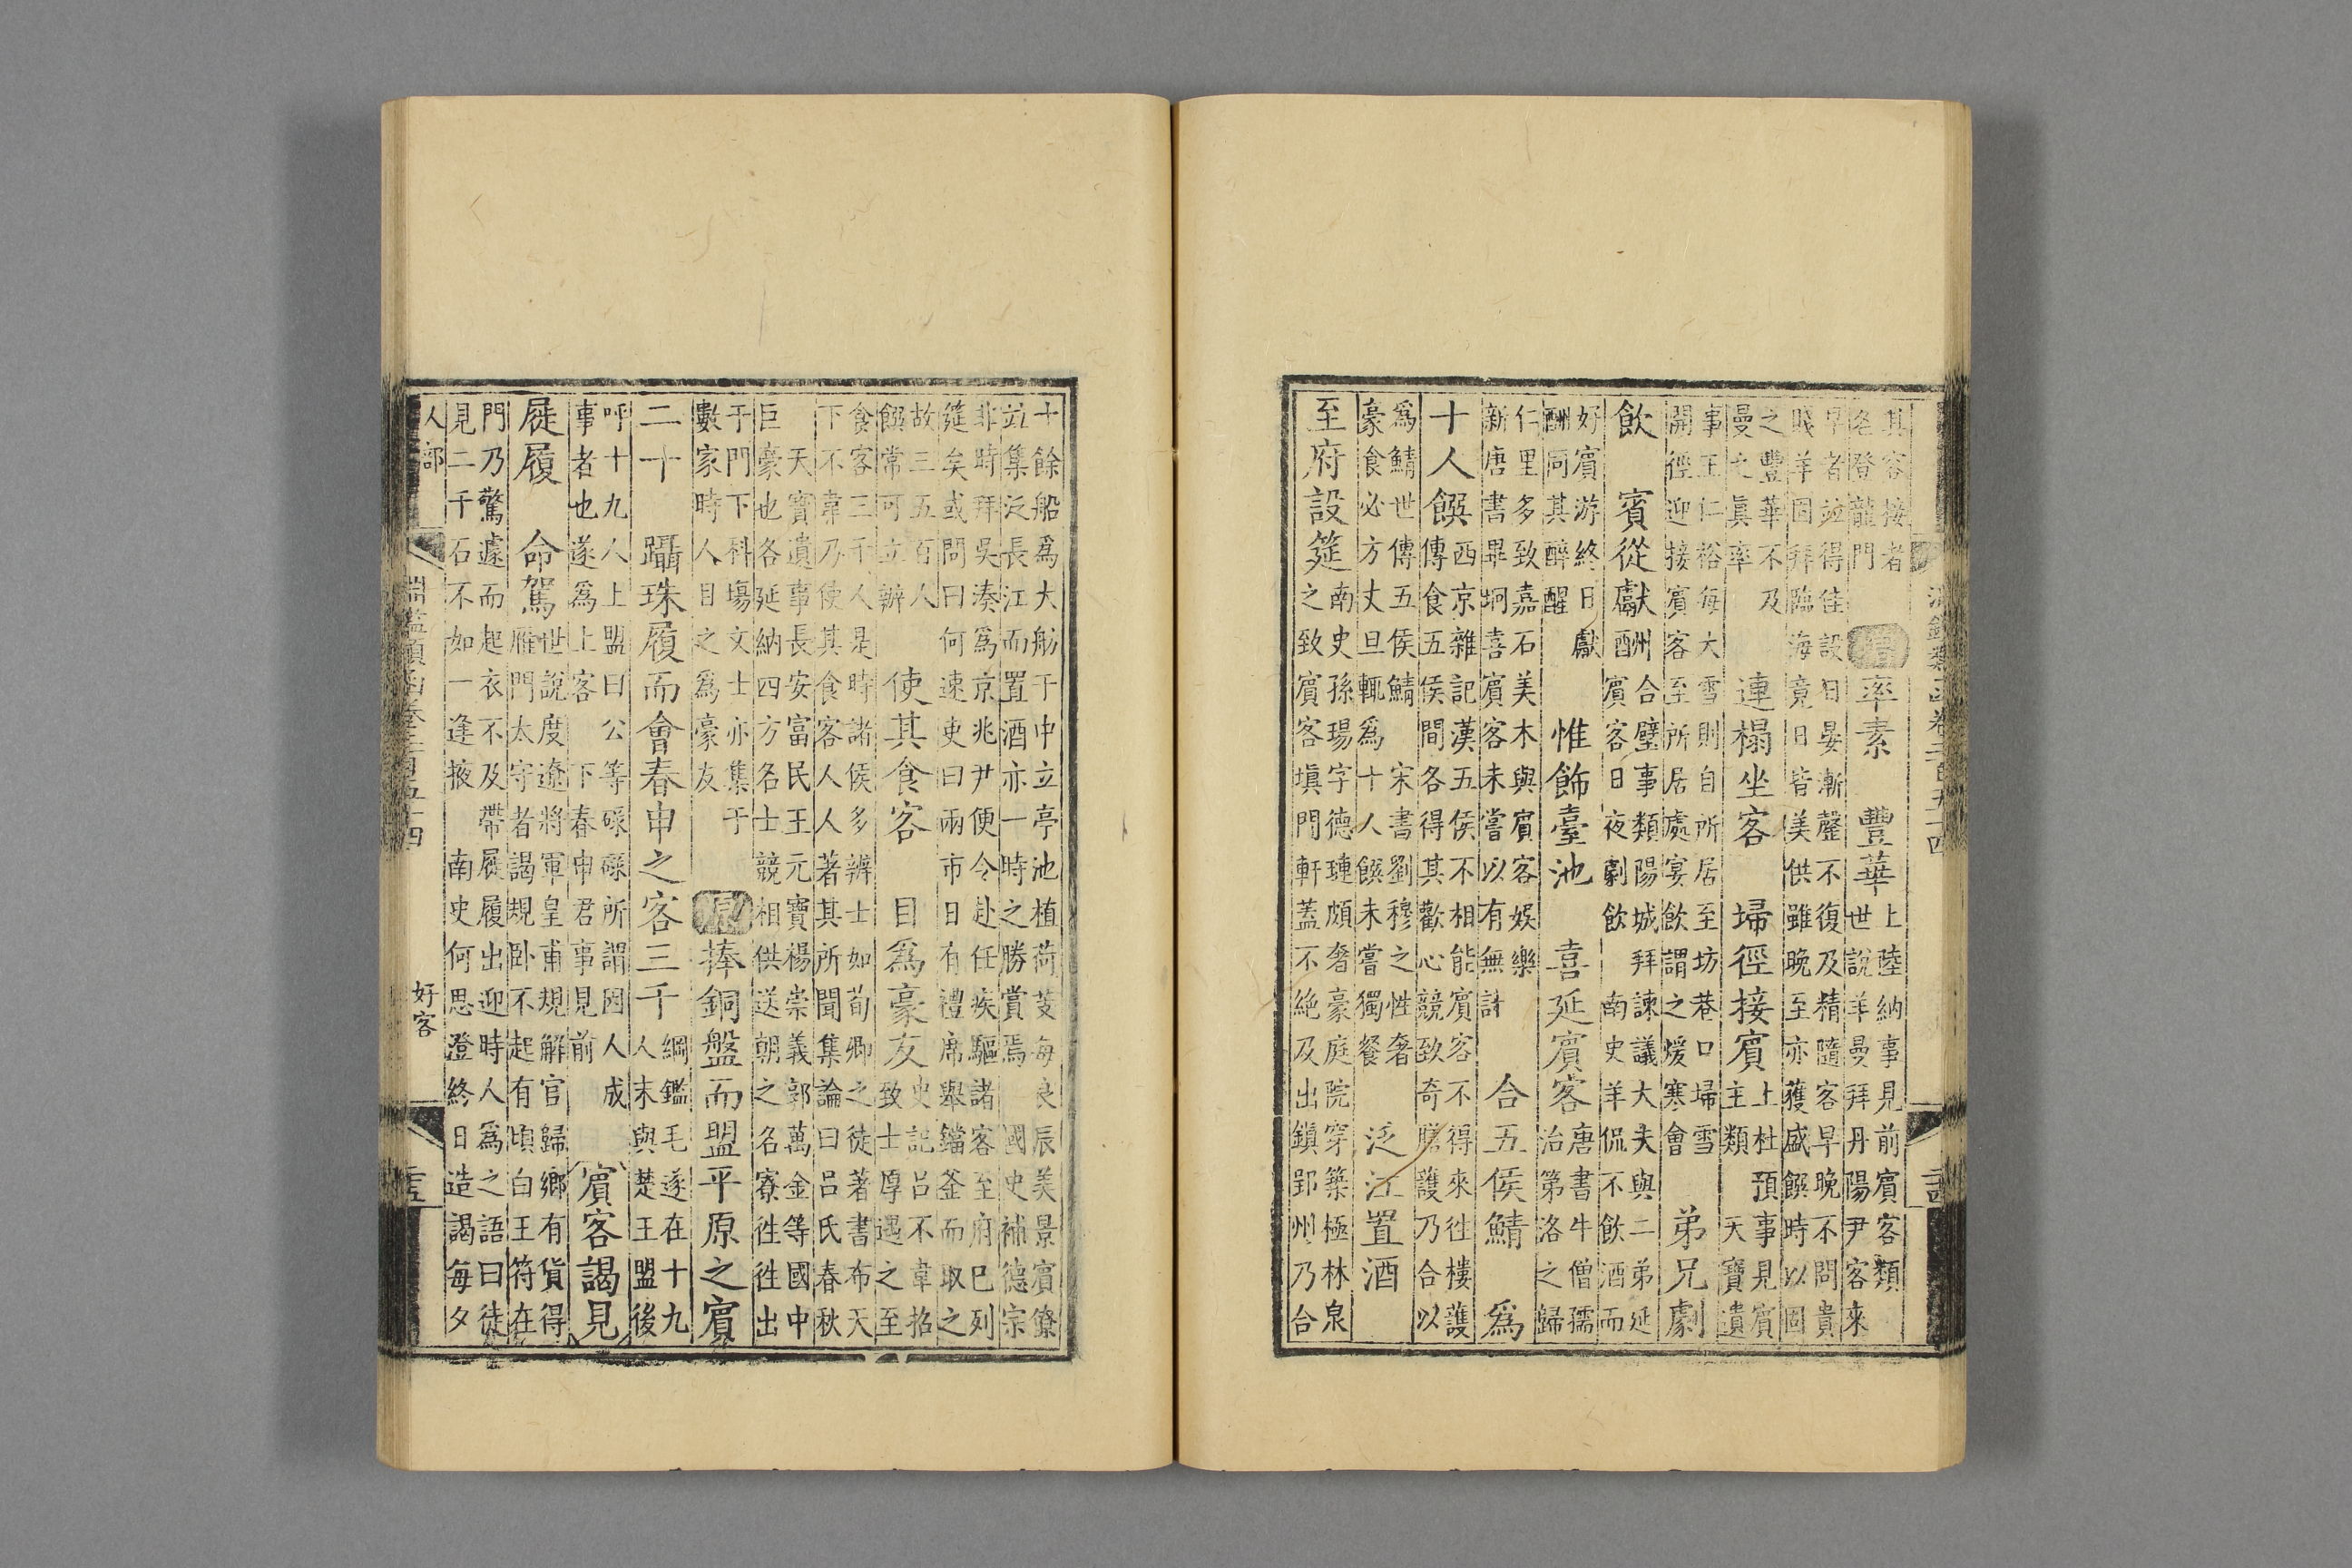 淵鑑類函卷二百五十四
其客接者
名登龍門
增 率素 豐華
上陸納事見前賓客類
世說羊曼拜丹陽尹客來
早者竝得佳設日晏漸罄不復及精隨客早晚不問貴
賤羊固拜臨海竟日皆美供雖晚至亦獲盛饌時以固
之豐華不及
曼之眞率
連榻坐客 埽徑接賓
上杜預事見賓
主類 天寶遺
事王仁裕每大雪則自所居至坊巷口埽雪
開徑迎接賓客至所居處宴飲謂之煖寒會
弟兄劇
飲 賓從獻酬
合璧事類陽城拜諫議大夫與二弟延
賓客日夜劇飲 南史羊侃不飲酒而
好賓游終日獻
酬同其醉醒
惟飾臺池 喜延賓客
唐書牛僧孺
治第洛之歸
仁里多致嘉石美木與賓客娛樂
新唐書畢坰喜賓客未嘗以有無計
合五侯鯖 爲
十人饌
西京雜記漢五侯不相能賓客不得來徃樓護
傳食五侯間各得其歡心競致奇膳護乃合以
爲鯖世傳五侯鯖 宋書劉穆之性奢
豪食必方丈旦輒爲十人饌未嘗獨餐
泛江置酒
至府設筵
南史孫瑒字德璉頗奢豪庭院穿築極林泉
之致賓客填門軒蓋不絕及出鎭郢州乃合
十餘船爲大舫于中立亭池植荷芰每良辰美景賓僚
竝集泛長江而置酒亦一時之勝賞焉 國史補德宗
非時拜吳湊爲京兆尹便令赴任疾驅諸客至府已列
筵矣或問曰何速吏曰兩市日有禮席舉鐺釜而取之
故三五百人
饌常可立辦
使其食客 目爲豪友
史記呂不韋招
致士厚遇之至
食客三千人是時諸侯多辨士如荀卿之徒著書布天
下不韋乃使其食客人人著其所聞集論曰呂氏春秋
天寶遺事長安富民王元寶楊崇義郭萬金等國中
巨豪也各延納四方名士競相供送朝之名寮徃徃出
于門下科塲文士亦集于
數家時人目之爲豪友
原 捧銅盤而盟平原之賓
二十 躡珠履而會春申之客三千
綱鑑毛遂在十九
人末與楚王盟後
呼十九人上盟曰公等碌碌所謂因人成
事者也遂爲上客 下春申君事見前
賓客謁見
屣履 命駕
世說度遼將軍皇甫規解官歸鄉有貨得
雁門太守者謁規卧不起有頃白王符在
門乃驚遽而起衣不及帶屣履出迎時人爲之語曰徒
見二千石不如一逢掖 南史何思澄終日造謁每夕
人部
淵鑑類函卷二百五十四
好客